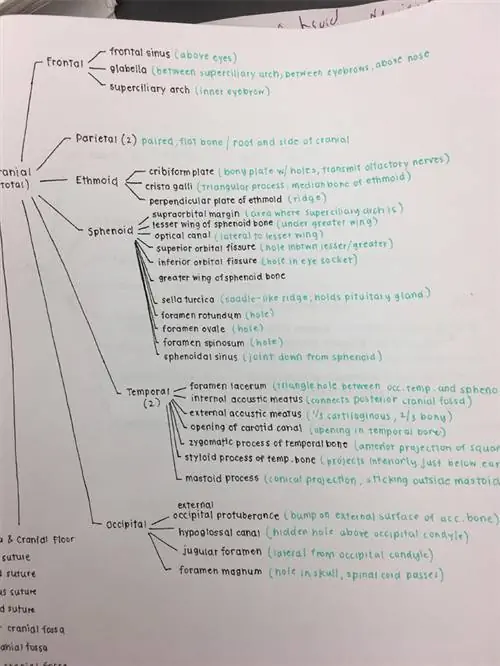 frontal sinus (above eyes)
Frontal
glabella (between superciliary arch, between eyebrows, above nose
superciliary arch (inner eyebrow)
Parietal (2) paired, flat bone / root and side of cranial
ranial
total)
cribiform plate (bony plate w/ holes, transmit olfactory nerves)
Ethmoid
crista galli (triangular process, median bone of ethmoid)
perpendicular plate of ethmoid (ridge)
supraorbital margin (area where superciliary arch is)
lesser wing of sphenoid bone (under greater wing)
Sphenoid
optical canal (lateral to lesser wing)
superior orbital fissure (hole inbtwn lesser/greater)
inferior orbital fissure (hole in eye socket)
greater wing of sphenoid bone
sella turcica (saddle-like ridge, holds pituitary gland)
foramen rotundum (hole)
foramen ovale (hole)
foramen spinosum (hole)
sphenoidal sinus (joint down from sphenoid)
foramen lacerum (triangle hole between occ. temp. and spheno
Temporal
(2)
internal acoustic meatus (connects posterior cranial fossa)
external acoustic meatus (1/3 cartilaginous, 2/3 bony)
opening of carotid canal (opening in temporal bone)
zygomatic process of temporal bone (anterior projection of squar
styloid process of temp. bone (projects inferiorly just below ear
mastoid process (conical projection, sticking outside mastoid
external
occipital protuberance (bump on external surface of occ. bone)
Occipital
hypoglossal canal (hidden hole above occipital condyle)
jugular foramen (lateral from occipital condyle)
foramen magnum (hole in skull, spinal cord passes)
& Cranial floor
suture
suture
suture
suture
cranial fossa
anial fossa
cranial fossa